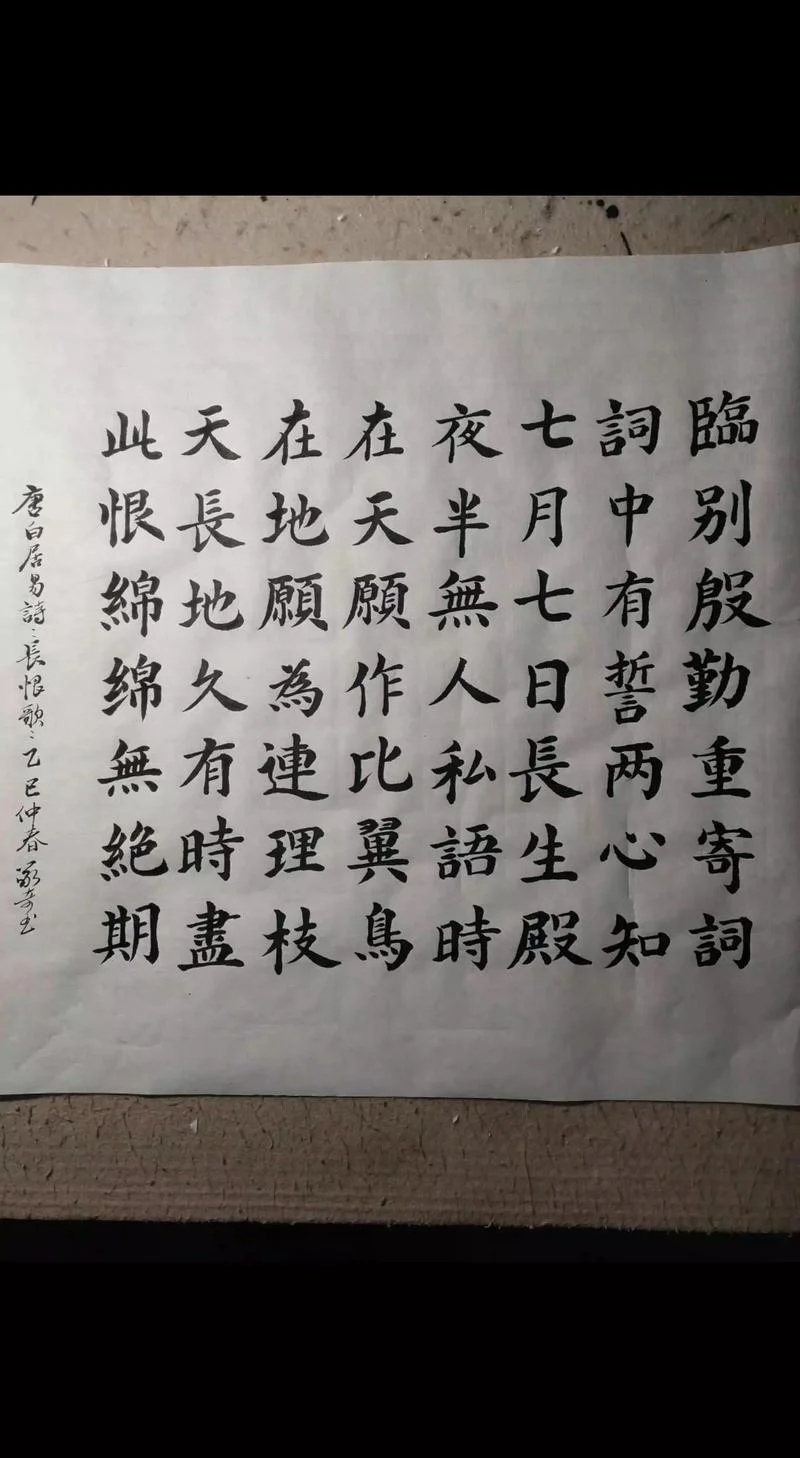 臨别殷勤重寄詞
詞中有誓两心知
七月七日長生殿
夜半無人私語時
在天願作比翼鳥
在地願為連理枝
天長地久有時盡
此恨綿绵無絶期
唐白居易詩：長恨歌：乙巳仲春